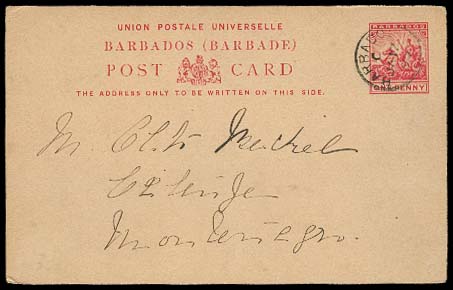 UNION POSTALE UNIVERSELLE
BARBADOS (BARBADE)
POST CARD
THE ADDRESS ONLY TO BE WRITTEN ON THIS SIDE.
BARBADOS
ONE PENNY
BARBADOS
M.
Montenegro.